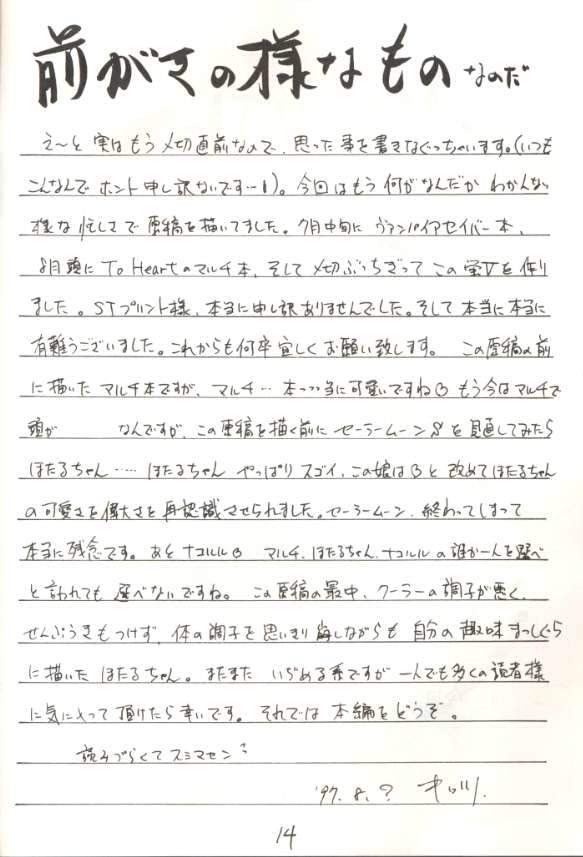 前がきの様なものなのだ
え〜と 実はもう〆切直前なので、思った事を書きなぐっちゃいます。(いつも
こんなんで ホント申し訳ないです…!)。今回はもう何がなんだか わかんない
様な忙しさで原稿を描いてました。7月中旬に ヴァンパイアセイバー本、
8月頭に To Heartのマルチ本、そして〆切ぶっちぎって この蛍Vを作り
ました。STプリント様、本当に申し訳ありませんでした。そして本当に本当に
有難うございました。これからも何卒宜しくお願い致します。 この原稿の前
に描いた マルチ本ですが、マルチ… 本っっ当に可愛いですね もう今はマルチで
頭が なんですが、この原稿を描く前に セーラームーンSを見直してみたら
ほたるちゃん…… ほたるちゃん やっぱり スゴイ、この娘は と 改めてほたるちゃん
の可愛さを偉大さを再認識させられました。セーラームーン、終わってしまって
本当に残念です。あと ナコルル マルチ、ほたるちゃん、ナコルルの誰か一人を選べ
と言われても 選べないですね。 この原稿の最中、クーラーの調子が悪く、
せんぷうきもつけず、体の調子を思いきり崩しながらも 自分の趣味まっしぐら
に描いた ほたるちゃん。またまた いぢめる系ですが 一人でも多くの読者様
に気に入って頂けたら幸いです。 それでは 本編をどうぞ。
読みづらくてスミマセン
'97. 8. ?
14